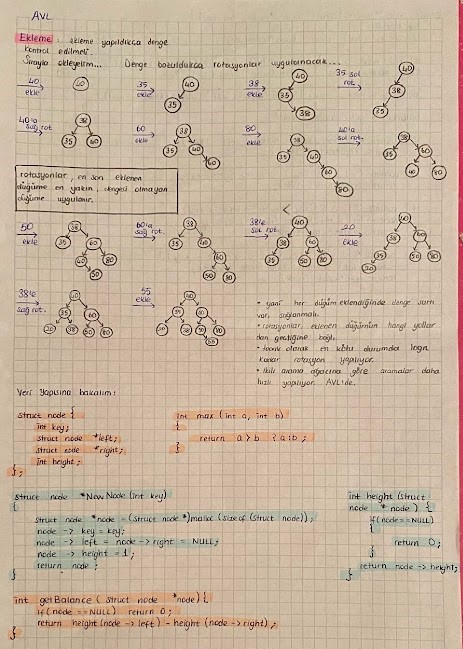 AVL
Ekleme : ekleme yapıldıkça denge
kontrol edilmeli.
Sırayla ekleyelim... Denge bozuldukça rotasyonlar uygulanacak...
40 ekle
40
35 ekle
40
35
38 ekle
40
35
38
35 sol rot.
40
38
35
40'a sağ rot.
38
35 40
60 ekle
38
35 40
60
80 ekle
38
35 40
60
80
40'a sol rot.
38
35 60
40 80
rotasyonlar, en son eklenen
düğüme en yakın, dengesi olmayan
düğüme uygulanır.
50 ekle
38
35 60
40 80
50
60'a sağ rot.
38
35 40
60
50 80
38'e sol rot.
40
38 60
35 50 80
20 ekle
40
38 60
35 50 80
20
38'e sağ rot.
40
35 60
20 38 50 80
55 ekle
40
35 60
20 38 50 80
55
• yani her düğüm eklendiğinde denge şartı
var, sağlanmalı.
• rotasyonlar, eklenen düğümün hangi yollar
dan geçtiğine bağlı.
• olarak en kötü durumda logn
kadar rotasyon yapılıyor.
• ikili arama ağacına göre aramalar daha
hızlı yapılıyor AVL'de.
Veri Yapısına bakalım :
struct node {
int key;
struct node *left;
struct node *right;
int height;
};
int max (int a, int b)
{
return a > b ? a : b ;
}
struct node *NewNode (int key)
{
struct node *node = (struct node*)malloc (sizeof (struct node));
node -> key = key;
node -> left = node -> right = NULL;
node -> height = 1;
return node ;
}
int height (struct
node * node) {
if(node==NULL)
{
return 0;
}
return node -> height;
}
int getBalance ( struct node *node) {
if (node == NULL) return 0;
return height (node -> left) - height (node -> right) ;
}